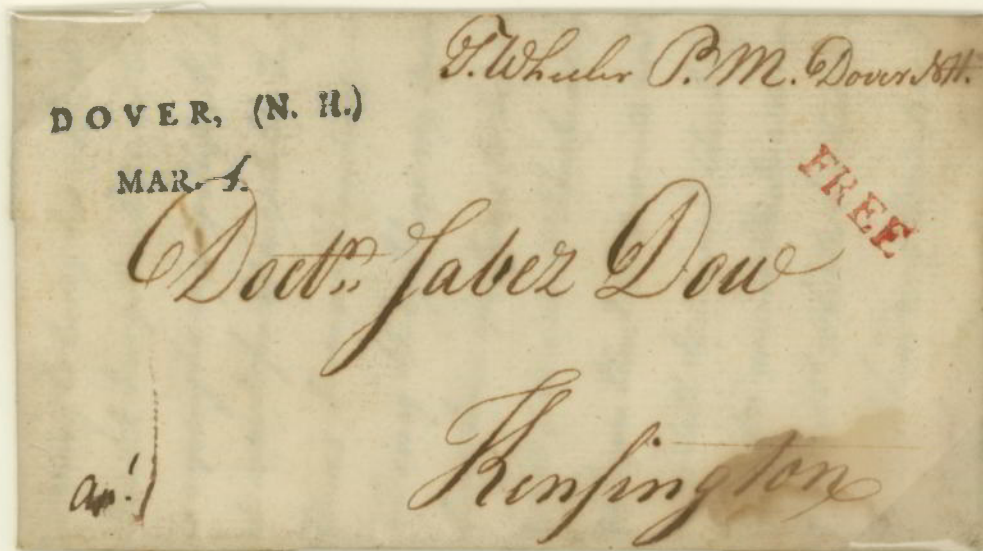 T. Wheeler P. M. Dover NH.
DOVER, (N. H.)
MAR. 1.
FREE
Doctr. Jabez Dow
Kenſington